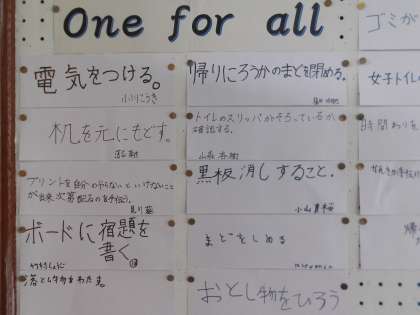 One for all
電気をつける。
机を元にもどす。
プリントを自分のやらないといけないこと
が出来次第配るのを手伝う。
ボードに宿題を
書く。
落とし物をわたす。
帰りにろうかのまどを閉める。
トイレのスリッパがそろっているか、
確認する。
黒板消しすること。
まどをしめる
おとし物をひろう
ゴミが
女子トイレの
時間わりを
帰